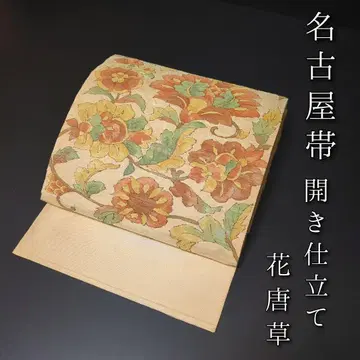 名古屋帯
開き仕立て
花唐草